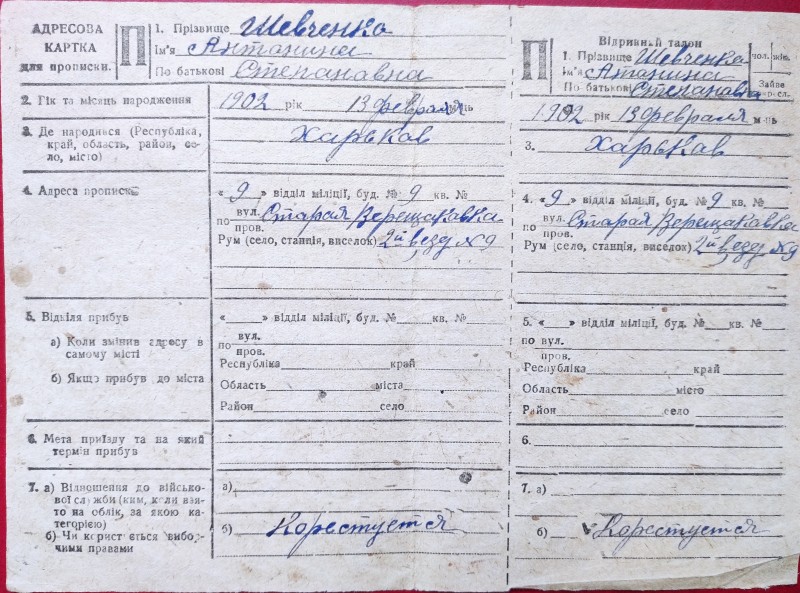 АДРЕСОВА
КАРТКА
для прописки.
П
1. Прізвище Шевченко
Ім'я Антанина
По батькові Степанавна
2. Рік та місяць народження
1902 рік 13 февраля м-ць
3. Де народився (Республіка,
край, область, район, се-
ло, місто)
Харьков
4. Адреса прописки
„9„ відділ міліції, буд. № 9 кв. №
по вул. пров. Старая Верещакавка
Рум (село, станція, виселок) 2й везд №9
5. Відкіля прибув
а) Коли змінив адресу в
самому місті
б) Якщо прибув до міста
„ „ відділ міліції, буд. № кв. №
по вул. пров.
Республіка край
Область міста
Район село
6. Мета приїзду та на який
термін прибув
7. а) Відношення до військо-
вої служби (ким, коли взя-
то на облік, за якою ка-
тегорією)
б) Чи користується вибор-
чими правами
а)
б) Корестуется
П
Відривний талон
1. Прізвище Шевченка чол. жін.
Ім'я Атанина
По батькові Степановна
1902 рік 13 февраля м-ць
3. Харьков
4. „9„ відділ міліції, буд. № 9 кв. №
по вул. пров. Старая Верещакавка
Рум (село, станція, виселок) 2й везд №9
5. „ „ відділ міліції, буд. № кв. №
по вул. пров.
Республіка край
Область місто
Район село
6.
7. а)
б) Корестуется